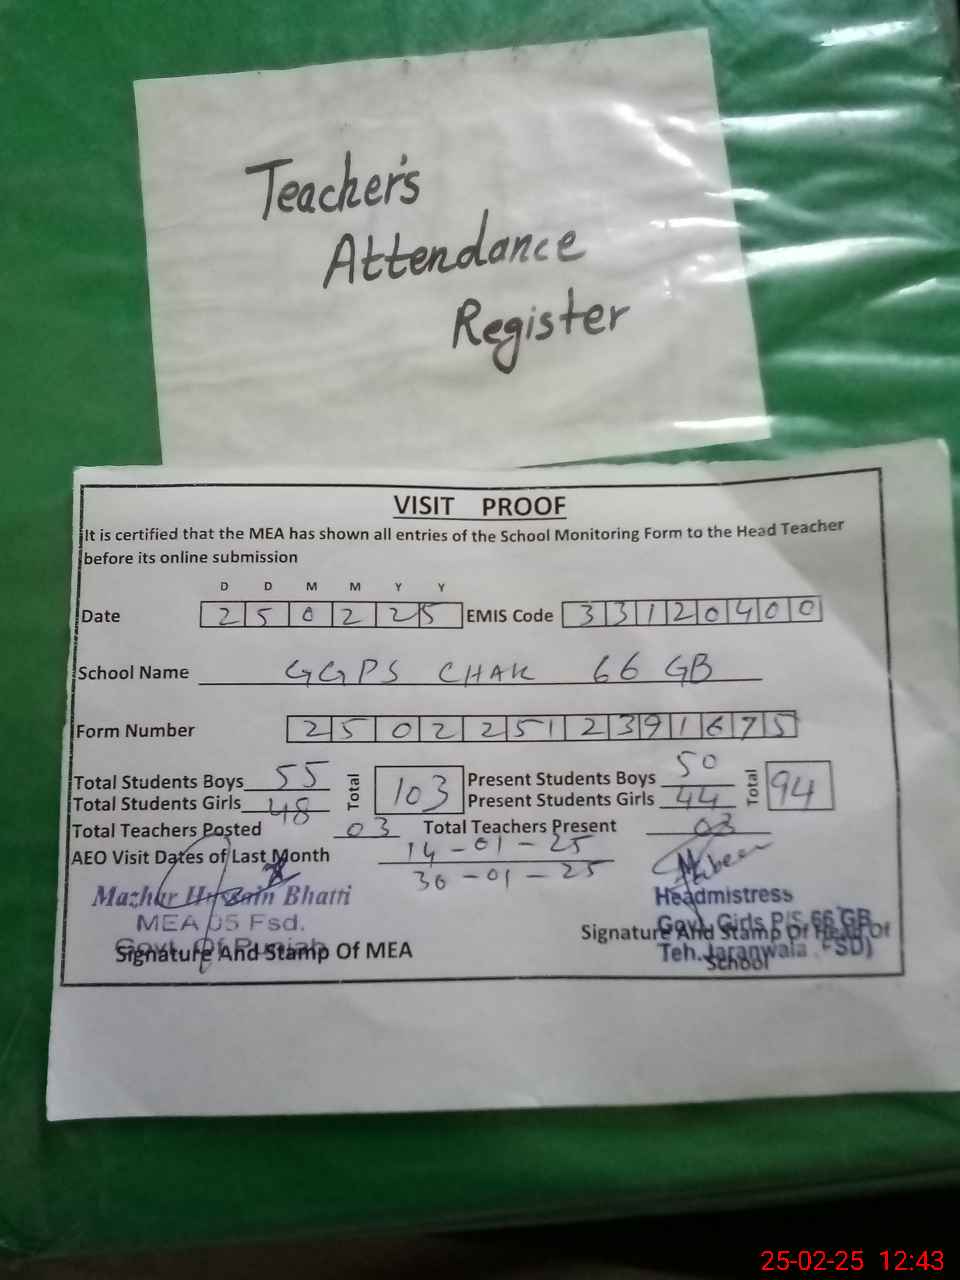 Teacher's
Attendance
Register
VISIT PROOF
It is certified that the MEA has shown all entries of the School Monitoring Form to the Head Teacher
before its online submission
D D M M Y Y
Date 2 5 0 2 2 5 EMIS Code 3 3 1 2 0 4 0 0
School Name GGPS CHAK 66 GB
Form Number 2 5 0 2 2 5 1 2 3 9 1 6 7 5
Total Students Boys 55 Total 103 Present Students Boys 50 Total 94
Total Students Girls 48 Present Students Girls 44
Total Teachers Posted 03 Total Teachers Present 03
AEO Visit Dates of Last Month 14-01-25
30-01-25
Mazhar Hussain Bhatti
MEA 05 Fsd.
Govt. Of Punjab
Signature And Stamp Of MEA
Headmistress
Govt. Girls P/S 66 GB
Signature And Stamp Of Head Of
Teh. Jaranwala FSD)
School
25-02-25 12:43